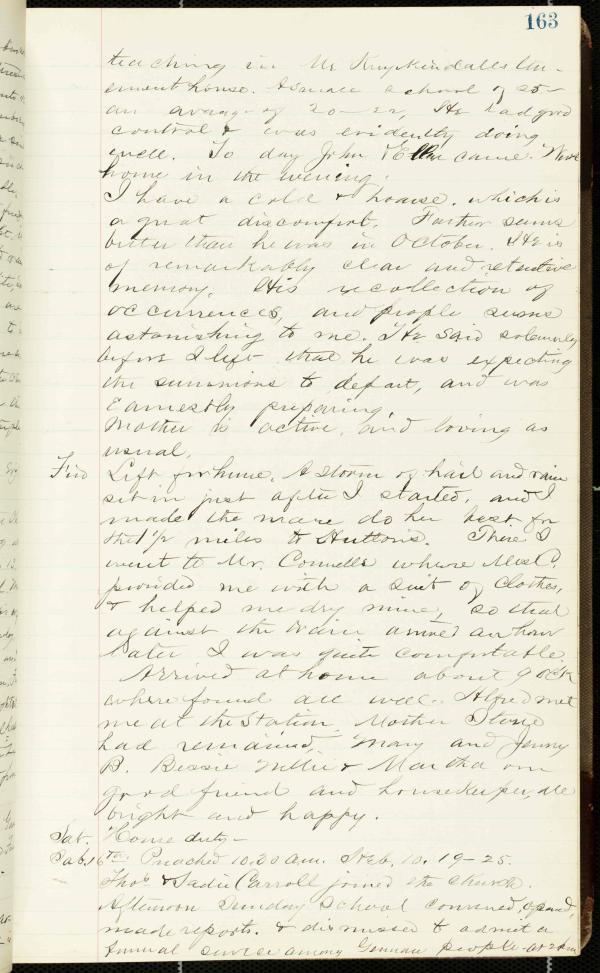 163
teaching in Mr Kuykindalls ten-
ement house. A small school of 25-
an average of 20-22, He had good
control & was evidently doing
well. To day John & Ella came. Went
home in the evening.
I have a cold & hoarse, which is
a great discomfort. Father seems
better than he was in October. He is
of remarkably clear and retentive
memory. His recollection of
occurrences, and people seems
astonishing to me. He said solemnly
before I left that he was expecting
the summons to depart, and was
earnestly preparing.
Mother is active, and loving as
usual.
Fri Left for home. A storm of hail and rain
set in just after I started, and I
made the mare do her best for
the 1½ miles to Huttons. There I
went to Mr. Connells where Mrs C.
provided me with a suit of clothes,
& helped me dry mine, so that
against the train arrived an hour
later I was quite comfortable.
Arrived at home about 9 ock
where found all well. Alfred met
me at the Station Mother Stone
had remained. Mary and Jenny
B. Bessie Nellie & Martha our
good friend and housekeeper, all
bright and happy.
Sat. Home duty-
Sab. 16th Preached 10.30 am. Heb. 10. 19-25.
Thos & Sadie Carroll joined the church.
Afternoon Sunday School convened, opened,
made reports. & dismissed to admit a
funeral service among German people-at 2 pm